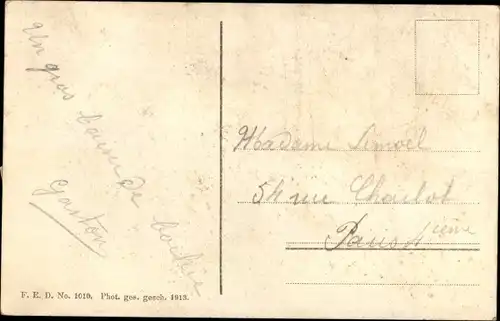 Un gros baiser de
Gaston
Madame Lemoel
54 rue Charlot
Paris
F. E. D. No. 1010. Phot. ges. gesch. 1913.